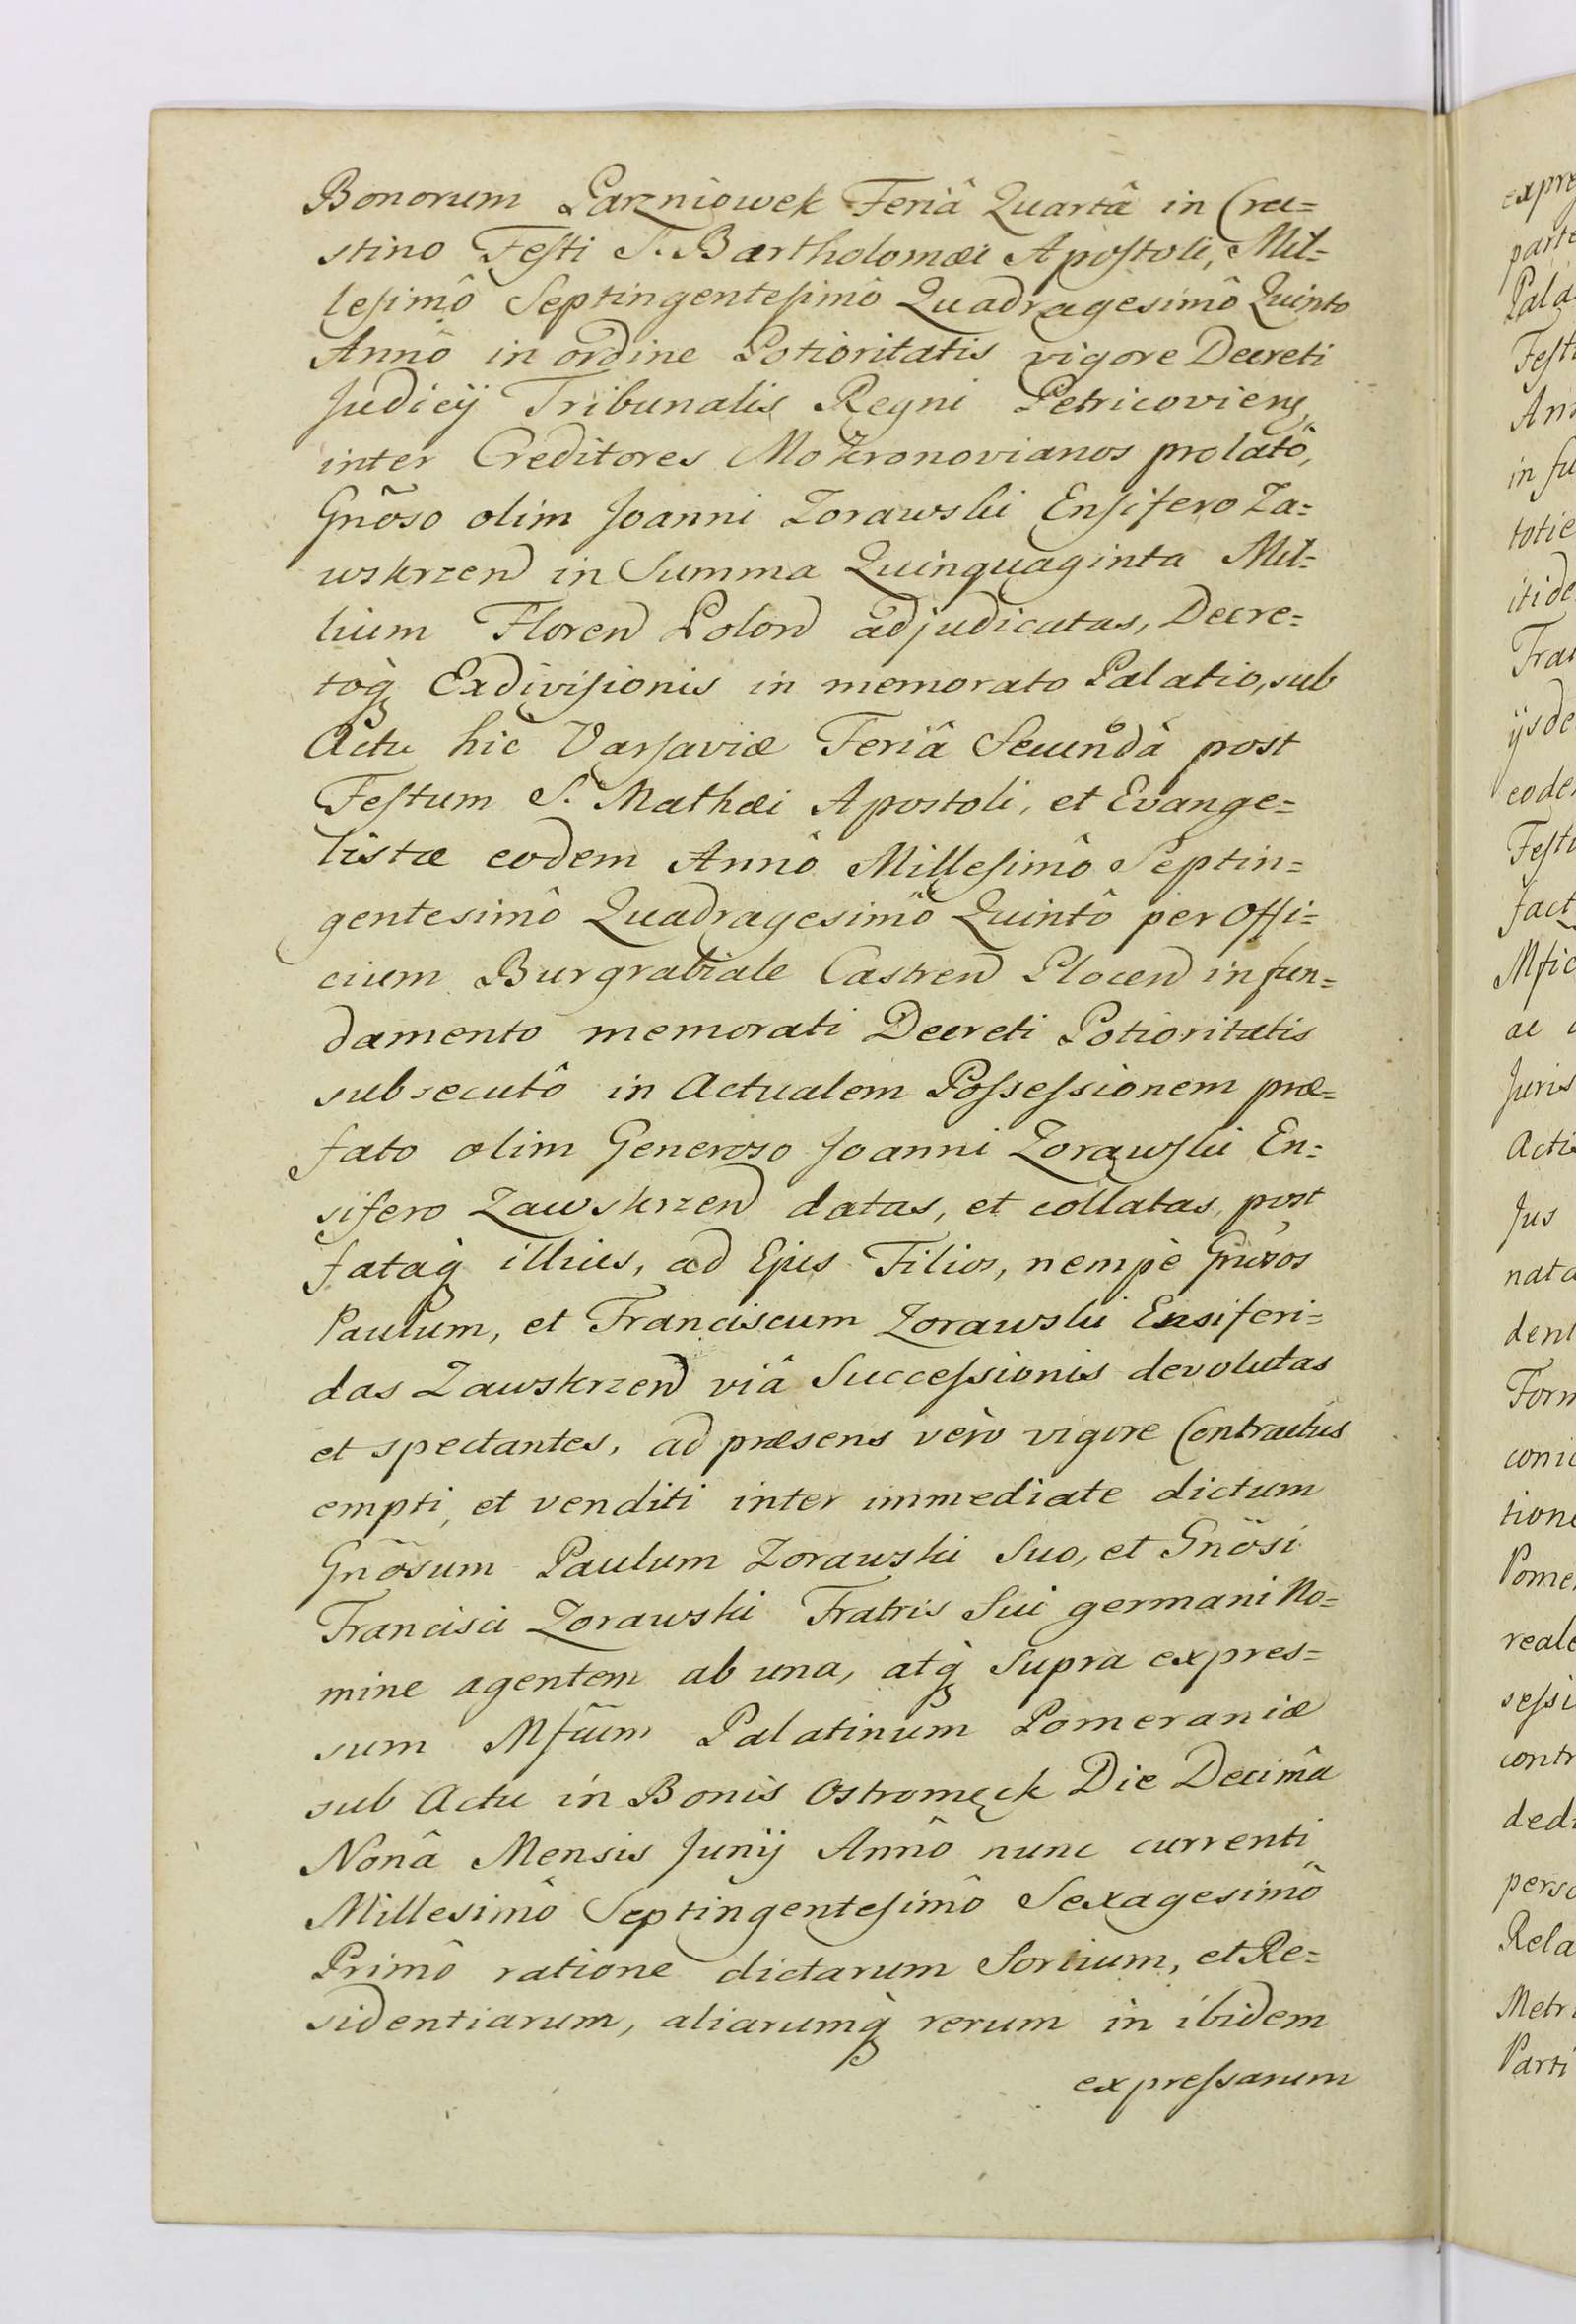 Bonorum Parzniowek Feriâ Quartâ in Cra=
stino Festi S. Bartholomæi Apostoli, Mil=
lesimô Septingentesimô Quadragesimô Quinto
Annô in ordine Potioritatis vigore Decreti
Judicÿ Tribunalis Regni Petricoviens
inter Creditores Mokronovianos prolatô,
Gnõso olim Joanni Zorawski Ensifero Za=
wskrzen in Summa Quinquaginta Mil=
lium Floren Polon adjudicatas, Decre=
toq̀ Exdivisionis in memorato Palatio, sub
Actu hic Varsaviæ Feriâ Secundâ post
Festum S. Mathæi Apostoli, et Evange=
listæ eodem Annô Millesimô Septin=
gentesimô Quadragesimô Quintô per Offi=
cium Burgrabiale Castren Plocen in fun=
damento memorati Decreti Potioritatis
subsecutô in Actualem Possessionem præ=
fato olim Generoso Joanni Zorawski En=
sifero Zawskrzen datas, et collatas, post
fataq̀ illius, ad Ejus Filios, nempè Gnõsos
Paulum, et Franciscum Zorawski Ensiferi=
das Zawskrzen viâ Successionis devolutas
et spectantes, ad præsens verò vigore Contractûs
empti, et venditi inter immediate dictum
Gnõsum Paulum Zorawski Suo, et Gnõsi
Francisci Zorawski Fratris Sui germani No=
mine agentem ab una, atq̀ Supra expres=
sum Mfcũm Palatinum Pomeraniæ
sub Actu in Bonis Ostromęck Die Decimâ
Nonâ Mensis Junÿ Annô nunc currenti
Millesimô Septingentesimô Sexagesimô
Primô ratione dictarum Sortium, et Re=
sidentiarum, aliarumq̀ rerum in ibidem
expressarum
expre
parte
Pala
Festi
Ann
in fu
totie
itide
Fran
ÿsde
eode
Festu
fact
Mfic
ac
Juris
Acti
Jus
nata
dent
Form
conic
tione
Pome
reale
sessi
contr
dedi
perso
Rela
Metri
Parti